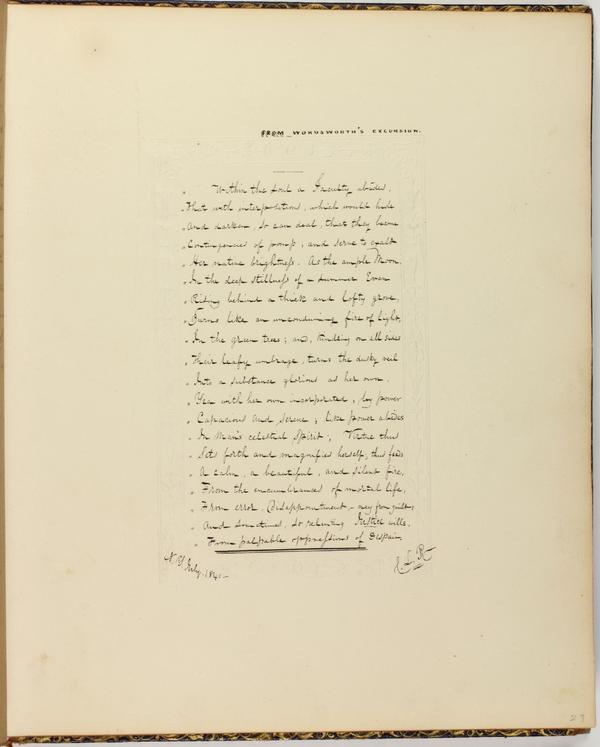 FROM WORDSWORTH'S EXCURSION.
" Within the soul a Faculty abides,
" That with interpositions, which would hide
" And darken, so can deal, that they become
" Contingencies of pomp; and serve to exalt
" Her native brightness. As the ample Moon,
" In the deep stillness of a summer Even
" Rising behind a thick and lofty grove,
" Burns like an unconsuming fire of light,
" In the green trees; and, kindling on all sides
" Their leafy umbrage, turns the dusky veil
" Into a substance glorious as her own,
" Yea with her own incorporated, by power
" Capacious and serene; like power abides
" In Man's celestial Spirit; Virtue thus
" Sets forth and magnifies herself; thus feeds
" A calm, a beautiful, and silent fire,
" From the encumbrances of mortal life,
" From error, Disappointment,– nay from guilt;
" And sometimes, so relenting Justice wills,
" From palpable oppressions of Despair.
N.Y July. 184
R
27